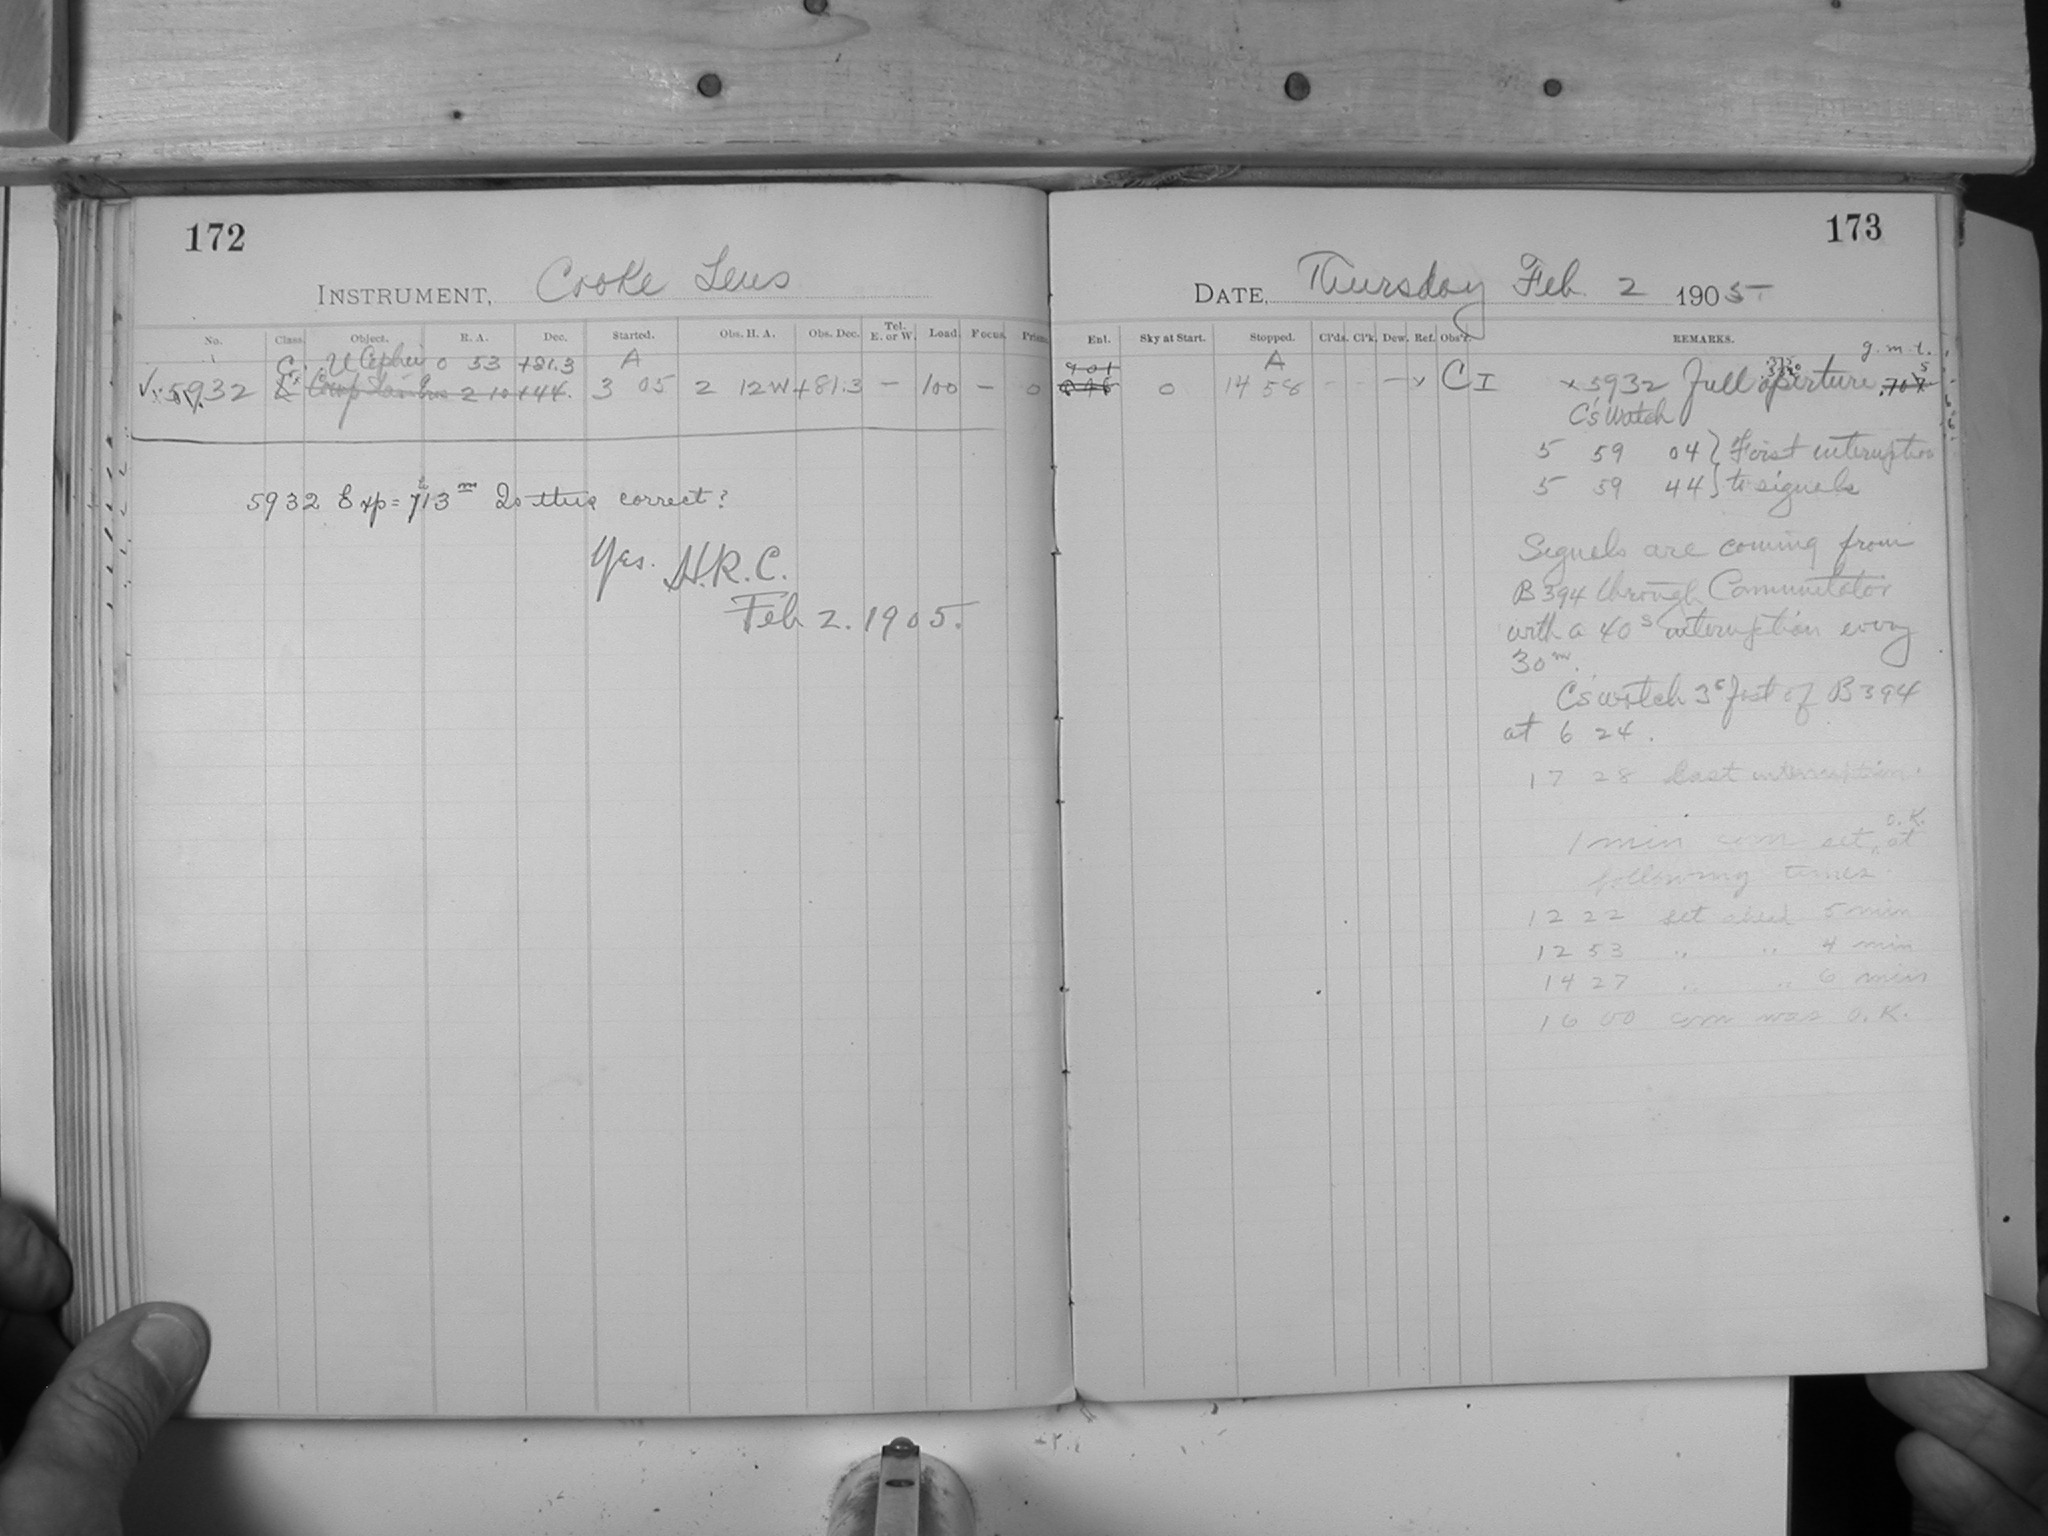 172
INSTRUMENT, Cooke Lens
No. Class. Object. R. A. Dec. Started. Obs. H. A. Obs. Dec. Tel. E. or W. Load. Focus. Prism.
C. U Cephei 0 53 +81.3 A
5932 2 10 +44. 3 05 2 12W +81.3 – 100 – 0
5932 Exp = 713 m Is this correct?
Yes. H.R.C.
Feb 2. 1905.
173
DATE, Thursday Feb. 2 1905
Enl. Sky at Start. Stopped. Cl'ds. Cl'k. Dew. Ref. Obs'r. REMARKS.
901 A g. m. t.
0 14 58 – – – x C I x 5932 Full aperture
C's Watch
5 59 04 } First interuption
5 59 44 } to signals
Signals are coming from
B 394 through Commutator
with a 40 s interuption every
30 m.
C's watch 3 s fast of B 394
at 6 24.
17 28 Last interruption.
o.K.
1 min com set, at
following times
12 22 set ahead 5 min
12 53 " " 4 min
14 27 " " 6 min
16 00 com was O.K.